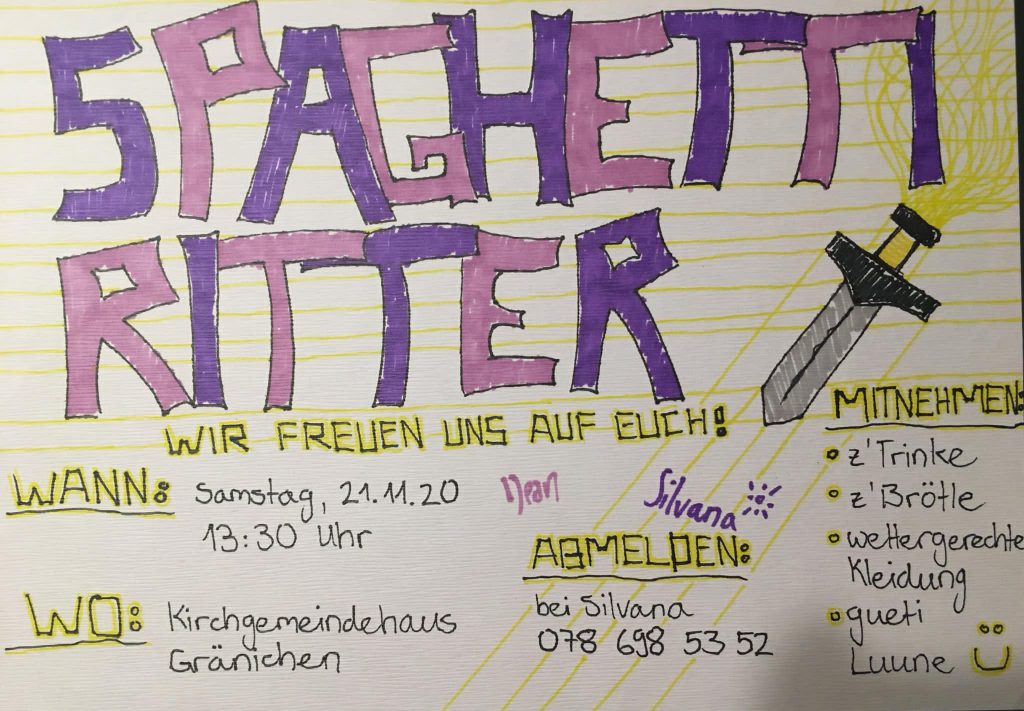 SPAGHETTI
RITTER
WIR FREUEN UNS AUF EUCH!
WANN: Samstag, 21.11.20
13:30 Uhr
Silvana
WO: Kirchgemeindehaus
Gränichen
ABMELDEN:
bei Silvana
078 698 53 52
MITNEHMEN:
z'Trinke
z'Brötle
wettergerechte
Kleidung
gueti
Luune